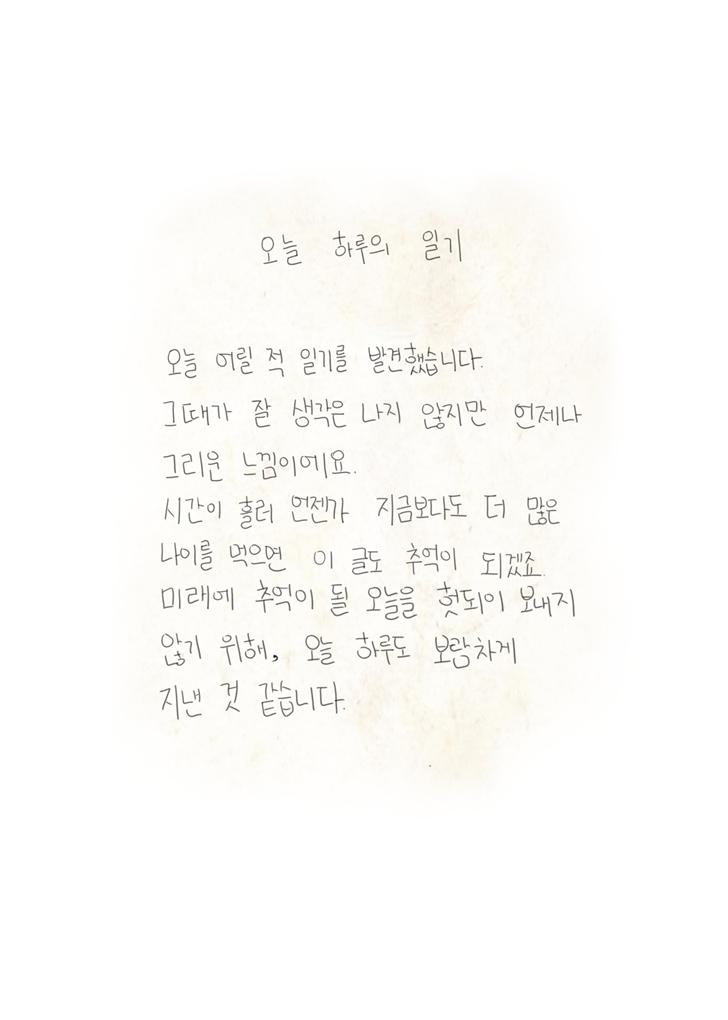 오늘 하루의 일기
오늘 어릴 적 일기를 발견했습니다.
그때가 잘 생각은 나지 않지만 언제나
그리운 느낌이에요.
시간이 흘러 언젠가 지금보다도 더 많은
나이를 먹으면 이 글도 추억이 되겠죠.
미래에 추억이 될 오늘을 헛되이 보내지
않기 위해, 오늘 하루도 보람차게
지낸 것 같습니다.